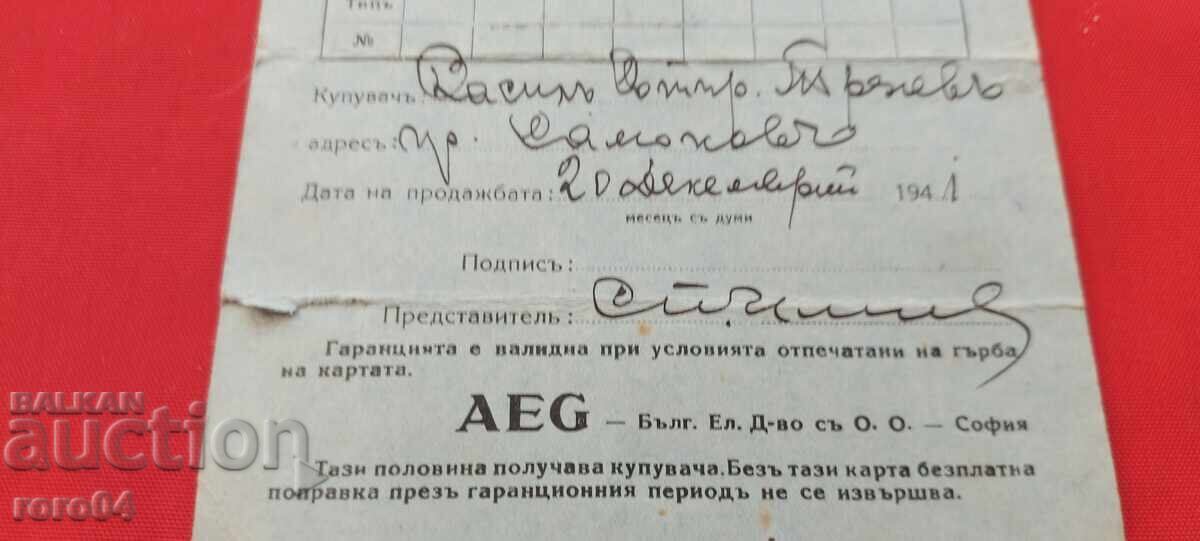 Типъ
№
Купувачъ: Василъ Димтр. Тръневъ
адресъ: гр. Самоковъ
Дата на продажбата: 20 Декемврий 1941
месецъ съ думи
Подписъ:
Представитель:
Гаранцията е валидна при условията отпечатани на гърба
на картата.
AEG — Бълг. Ел. Д-во съ О. О. — София
Тази половина получава купувача. Безъ тази карта безплатна
поправка презъ гаранционния периодъ не се извършва.
BALKAN
auction
roro04